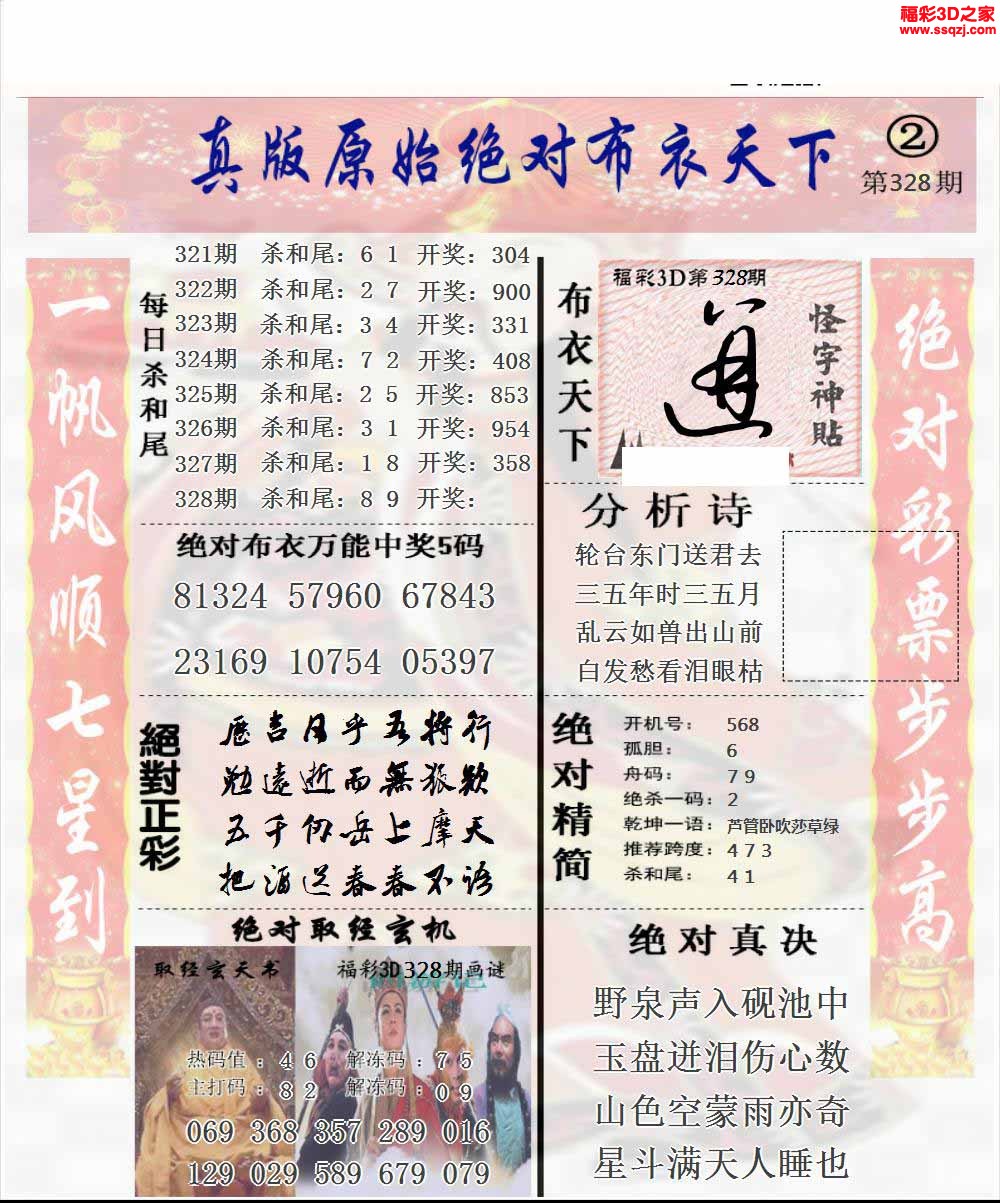 福彩3D之家
www.ssqzj.com
真版原始绝对布衣天下
②
第328期
一帆风顺七星到
每日杀和尾
321期 杀和尾：6 1 开奖：304
322期 杀和尾：2 7 开奖：900
323期 杀和尾：3 4 开奖：331
324期 杀和尾：7 2 开奖：408
325期 杀和尾：2 5 开奖：853
326期 杀和尾：3 1 开奖：954
327期 杀和尾：1 8 开奖：358
328期 杀和尾：8 9 开奖：
绝对布衣万能中奖5码
81324 57960 67843
23169 10754 05397
絕對正彩
歷吉日乎吾将行
勉遠逝而無狐欵
五千仞岳上摩天
把酒送春春不语
绝对取经玄机
取经玄天书
福彩3D328期画谜
热码值：4 6 解冻码：7 5
主打码：8 2 解冻码：0 9
069 368 357 289 016
129 029 589 679 079
布衣天下
福彩3D第328期
怪字神貼
分析诗
轮台东门送君去
三五年时三五月
乱云如兽出山前
白发愁看泪眼枯
绝对精简
开机号：568
孤胆：6
舟码：7 9
绝杀一码：2
乾坤一语：芦管卧吹莎草绿
推荐跨度：4 7 3
杀和尾：4 1
绝对真决
野泉声入砚池中
玉盘迸泪伤心数
山色空蒙雨亦奇
星斗满天人睡也
绝对彩票步步高